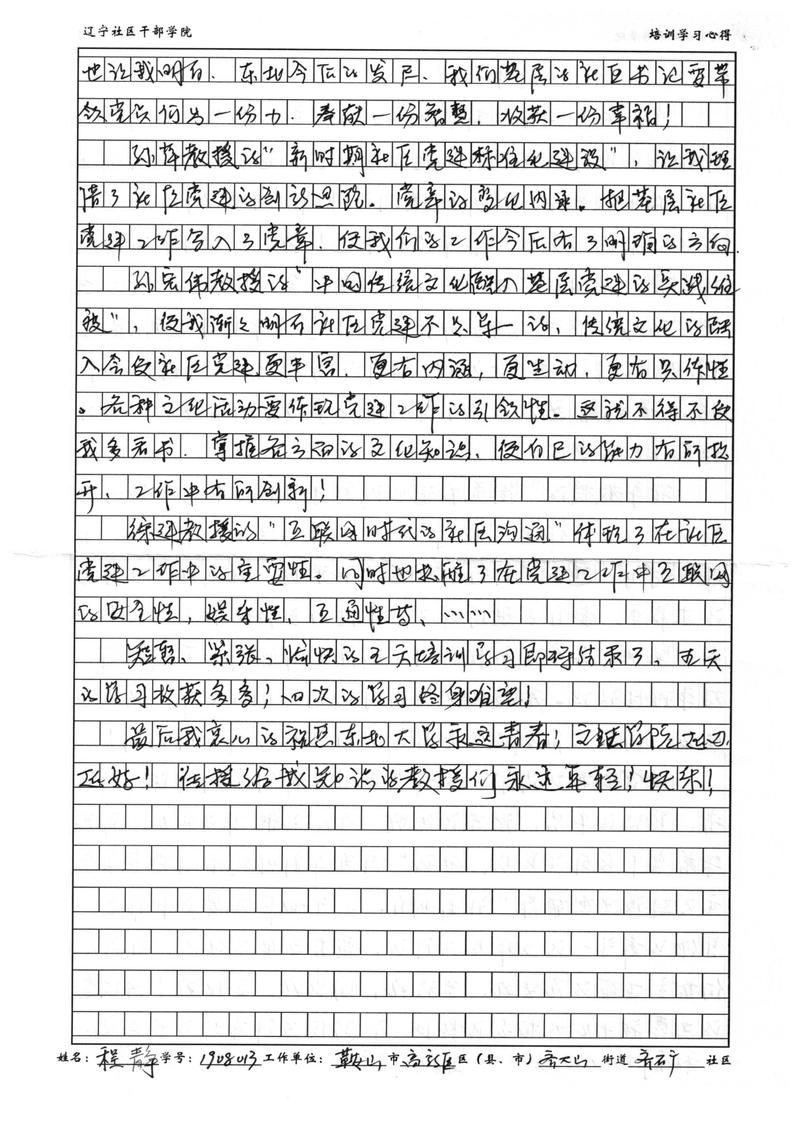 辽宁社区干部学院 培训学习心得
也让我明白、东北今后的发展、我们基层的社区书记要带
领党员们出一份力、奉献一份智慧，收获一份幸福！
教授的“新时期社区党建标准化建设”，让我理
清了社区党建的创新思路。党章的变化内涵。把基层社区
党建工作写入了党章、使我们的工作今后有了明确的方向
孙宏伟教授的“中国传统文化融入基层党建的实践维
度”，使我渐渐明白社区党建不只单一的、传统文化的融
入会使社区党建更丰富、更有内涵，更生动，更有具体性
。各种文化活动要体现党建工作的引领性。这就不得不使
我多看书、掌握各方面的文化知识、使自己的能力有所提
升、工作中有所创新！
徐建教授的“互联网时代的社区沟通”体现了在社区
党建工作中的重要性。同时也体现了在党建工作中互联网
的安全性，娱乐性，互通性等、……
短暂、紧张、愉快的五天培训学习即将结束了、五天
的学习收获多多！一次的学习终身难忘！
最后我衷心的祝愿东北大学永远青春！文法学院越办
越好！传授给我知识的教授们永远年轻！快乐！
姓名：程静 学号：1908013 工作单位：鞍山 市 高新区 区（县、市） 齐大山 街道 齐矿 社区